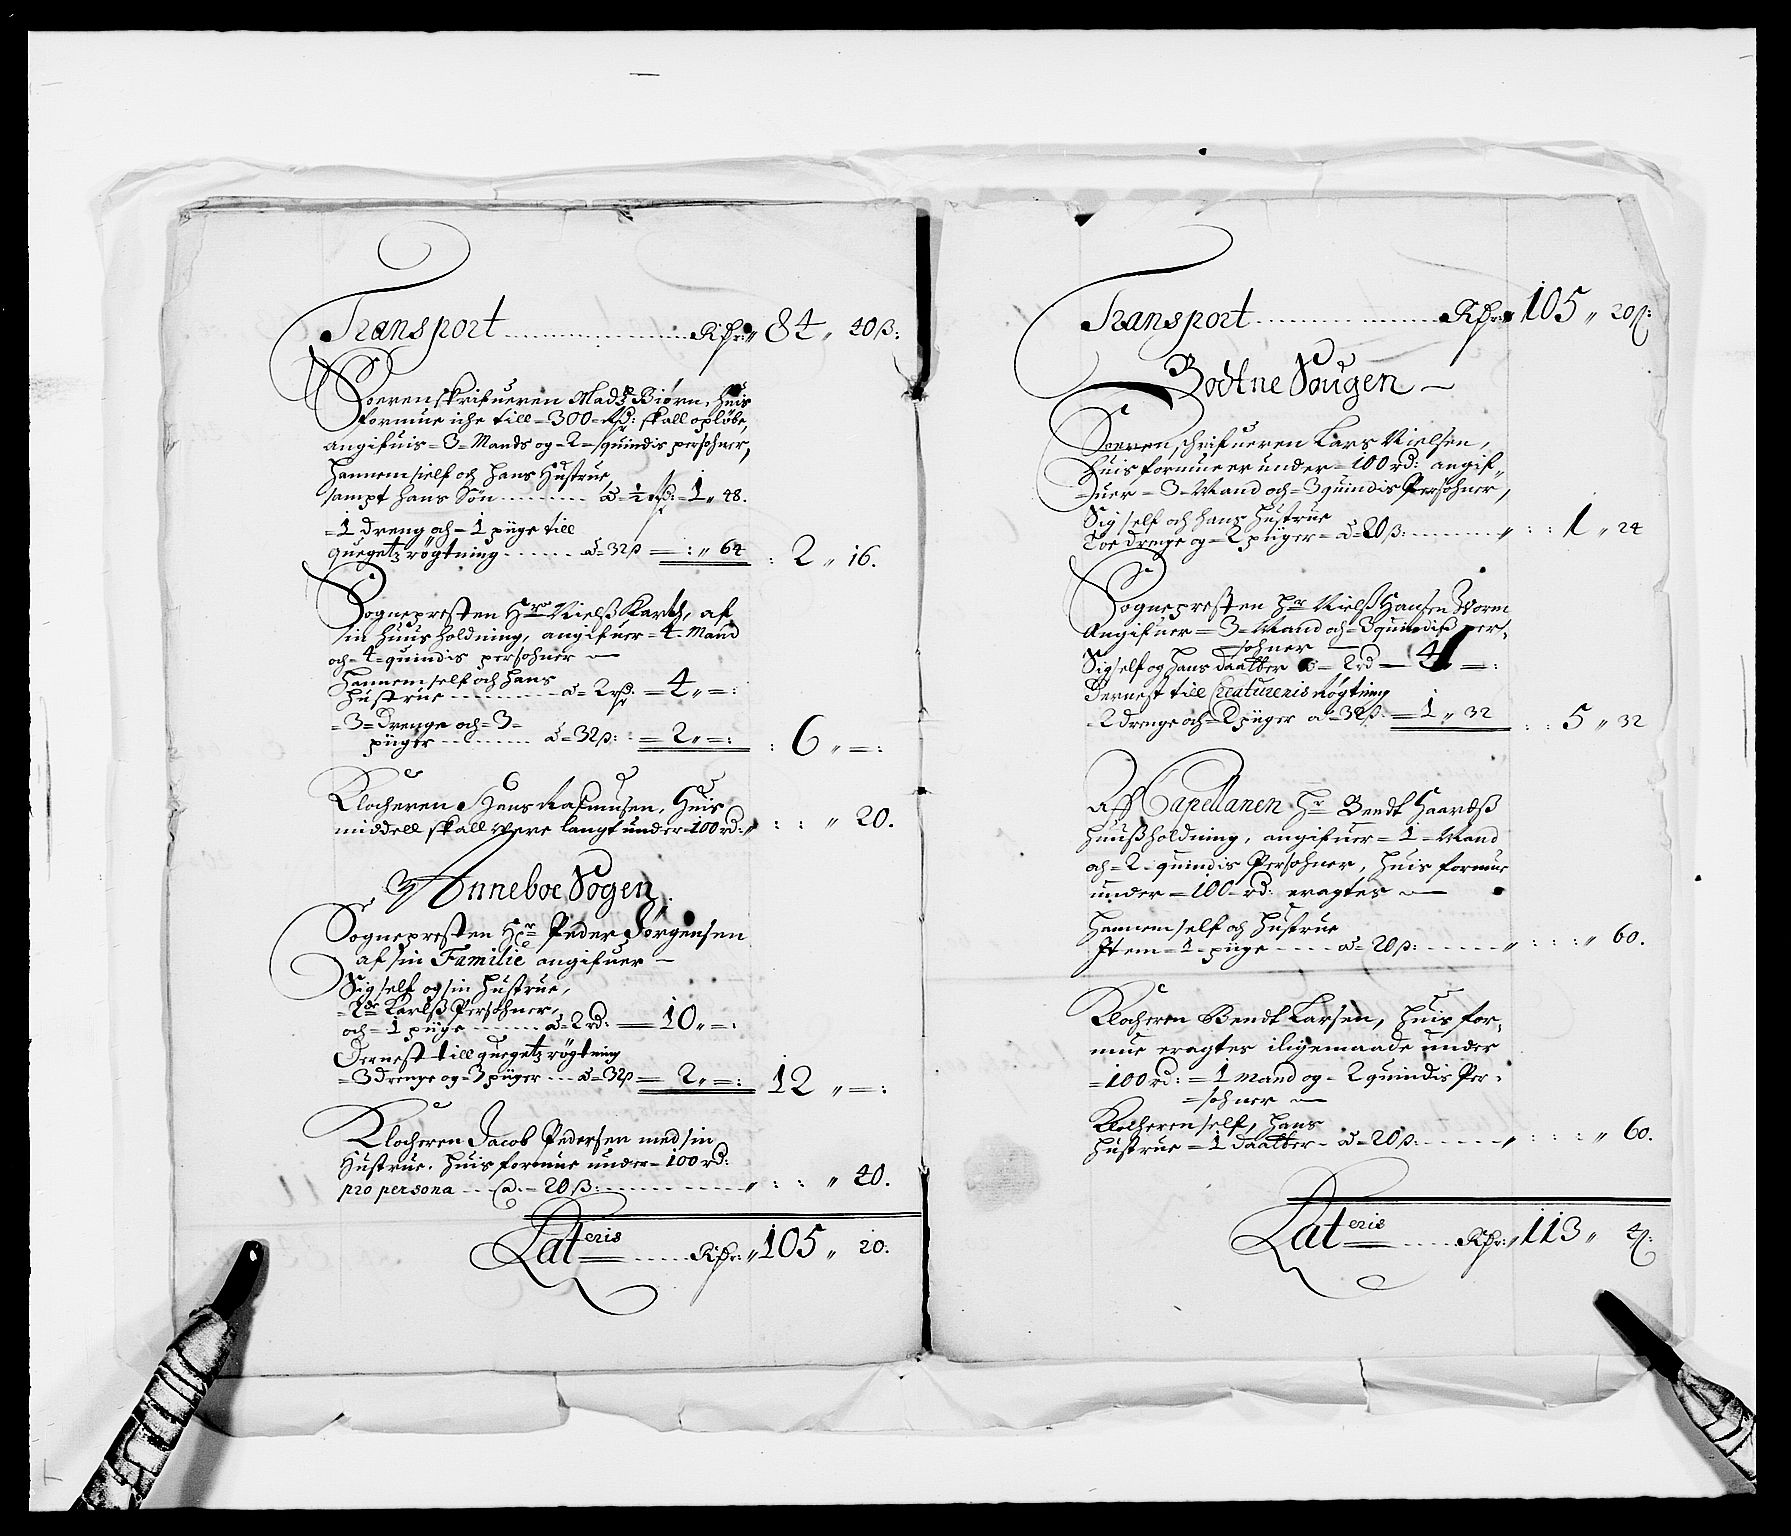 Transport ........ Rdr: 84 „ 40 ß:
Sorenskrifueren Madz Biørn, huis
formue iche till = 300 = Rdr: skall opløbe,
angifuis = 3 = Mands og = 2 = quindis persohner,
hannem sielf och hans hustrue,
sampt hans Søn ........ à = ½ rdr = 1 „ 48.
= 1 dreng och = 1 piige till
quegetz røgtning ....... à = 32 ß = : „ 64 : 2 „ 16.
Sognepresten Hr Nielß Karth, af
sin huusholdning, angifuer = 4 = Mand
och = 4 = quindis persohner —
Hannem self och hans
hustrue ........... à = 2 rd: = 4 „ = :
= 3 = drenge och = 3 =
piiger .......... à = 32 ß: = 2 „ = : : 6 „ = :
Klocheren Jens Rasmusen, huis
middell skall vere langt under = 100 rd: „ : : „ 20.
Anneboe Sogen
Sognepresten Hr Peder Jørgensen
af sin Familie angifuer —
Sig self og sin hustrue,
= 2de Karlß Persohner,
och = 1 piige ....... à = 2 rd: = 10 „ = :
Dernest till quegetz røgtning
= 3 drenge og = 3 piiger ... à = 32 ß = 2 „ = : 12 „ = :
Klocheren Jacob Pedersen med sin
Hustrue. huis formue under = 100 rd:
pro persona ... à = 20 ß: ........ „ : : „ 40.
Lateris ..... Rdr: „ 105 „ 20:
Transport ........ Rdr: 105 „ 20 ß:
Bodtne Sougen —
Soeren schrifueren Lars Nielsen,
huis formue er under = 100 rd: angif„
= uer = 3 = Mand och = 3 quindis Persohner,
Sig self och hans hustrue
Toe drenge og = 2 piiger = à = 20 ß: ....... „ : : 1 „ 24
Sognepresten hr Nielß Hansen Worm
Angifuer = 3 = Mand och = 3 quindiß per=
= sohner —
Sig self og hans daatter à = 2 rd = 4 = :
Dernest till Creaturenis Røgtning
= 2 drenge och = 2 piiger à = 32 ß: = 1 „ 32 : : 5 „ 32
Aff Capellanen Hr Bendt Haardß
huußholdning, angifuer = 1 = Mand
och = 2 = quindis Persohner, huis formue
under = 100 = rd: eragtes —
Hannem self och hustrue
Item = 1 = piige ..... à = 20 ß: ...... „ : : : „ 60.
Klocheren Bendt Larsen, huis for=
mue eragtes iligemaade under
= 100 rd: = 1 mand og = 2 quindis Per=
= sohner —
Klocheren self, hans
hustrue = 1 daatter = à = 20 ß: ...... „ : : : „ 60.
Lateris ..... Rdr: „ 113 „ 4 ß: